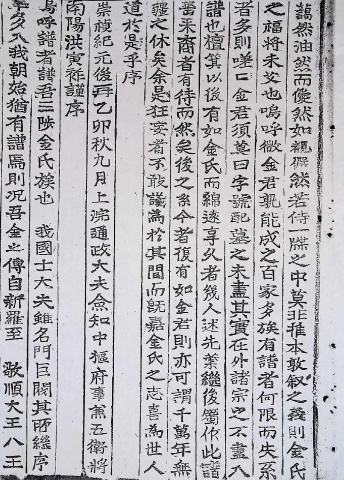 藹然油然而僾然如親偲然若侍一牒之中莫非推本敦叙之義則金氏
之福將未艾也嗚呼微金君孰能成之百家多族有譜者何限而失系
者多則嗟口金君須蓋曰字號配墓之未盡其實在外諸宗之不盡入
譜也檀箕以後有如金氏而綿遠享久者幾人述先業繼後蜀作此譜
昔來裔者有待而然矣後之系今者復有如金君則亦可謂千萬年無
疆之休矣余是狂妄者不敢議為於其間而旣嘉金氏之志喜為世人
道於是乎序
崇禎紀元後再乙卯秋九月上浣通政大夫僉知中樞府事兼五衛將
南陽洪寅祚謹序
嗚呼譜者譜吾三陟金氏族也 我國士大夫雖名門巨閥其所繼序
率多入我朝始猶有譜焉則况吾金之傳自新羅至 敬順大王八王